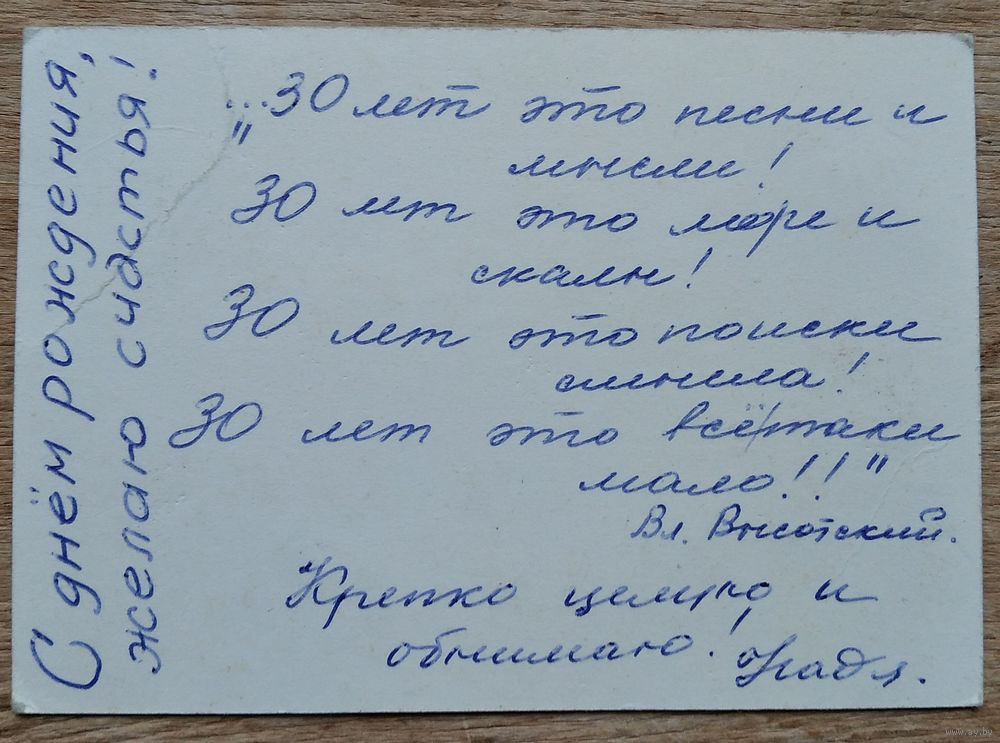 С днём рождения,
желаю счастья!
"...30 лет это песни и
мысли!
30 лет это море и
скалы!
30 лет это поиски
смысла!
30 лет это всё таки
мало!!"
Вл. Высотский.
Крепко целую и
обнимаю! Надя.
www.ay.by